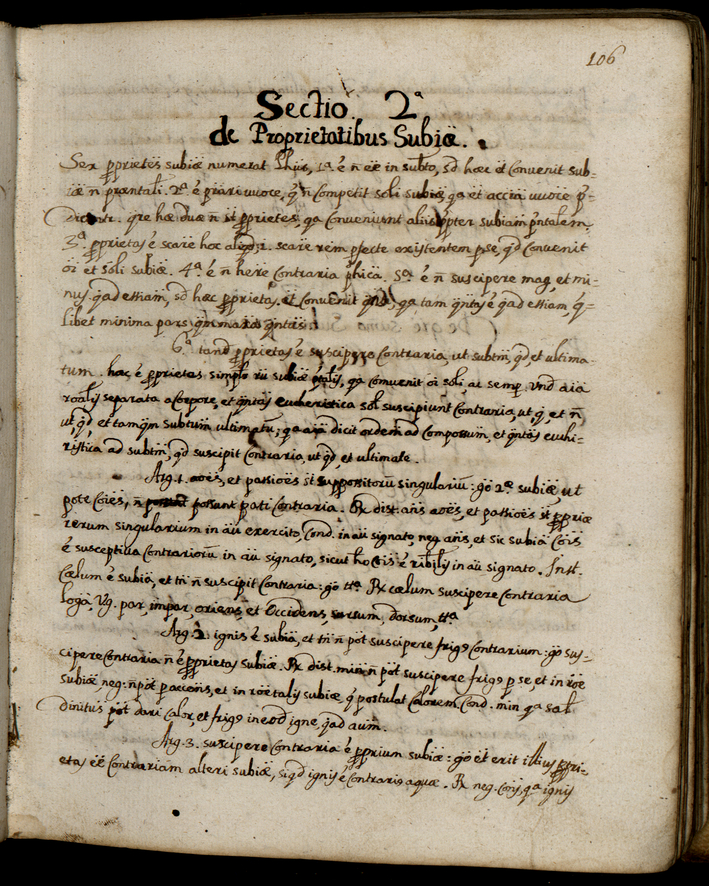 106
Sectio 2ª
de Proprietatibus Subiæ.
Sex pprietes subiæ numerat Phus, 1ª é ñ eê in subto, sd hæc êt Convenit sub-
iæ ñ prœntali. 2ª é prari uuoce, q̃ ñ Competit soli subiæ, qa et accia uuoce p-
dicantr. qre hæ duæ ñ st pprietes, qa Conveniunt aliis ppter subiam pntalem,
3ª pprietas é scare hoc aliqd, i. scare rem pfecte existentem p se, qd Convenit
oi et soli subiæ. 4ª é ñ here Contraria phica. 5ª é ñ suscipere mag, et mi-
nus qad essiam, sd hæc pprietas êt Convenit qnti, qa tam qntas é qad essiam, q-
libet minima pars qm maxa qntas.
6ª tand pprietas é suscipere Contraria, ut subtm, qd, et ultima-
tum. hæc é pprietas simplr rii subiæ talis, qa Convenit oi soli, ac semp. Und aia
roalis separata a Corpore, et qntas eucheristica sol suscipiunt Contraria, ut q, et ñ
ut qd et tamqm subtum ultimatu; qa aia dicit ordinem ad Compositum, et qntas euchi-
ristica ad subtm, qd suscipit Contraria, ut qd, et ultimate.
Arg. 1. aoês, et passioês st suppositoru singulariu: go 2ª subiæ ut
pote Coies, ñ possunt pati Contraria. Rx dist. añs aoês, et passioês st ppriæ
rerum singularium in áu exercito, Cond. in áu signato, neg. añs, et sic subia Cois
é susceptiua Contrarioru in áu signato, sicut ho Cois é ribilis in áu signato. Inst.
Cœlum é subia, et tñ ñ suscipit Contraria: go ttª. Rx cœlum suscipere Contraria
loga. Vg. par, impar, oriens, et Occidens, sursum, dorsum, ttª
Arg. 2 ignis é subia, et tñ ñ pôt suscipere frigs contrarium: go sus-
cipere Contraria ñ é pprietas subiæ. Rx dist. min. ñ pôt suscipere frigs p se, et in roê
subiæ neg. ñ pôt p accions, et in roê talis subiæ q postulat Calorem, Cond. min qa sal
dinitus pôt dari Calor, et frigs in eod igne, qad aum.
Arg. 3. suscipere Contraria é pprium subiæ: go êt erit illius ppri-
etas eê Contrariam alteri subiæ, siqd ignis é Contraris aquæ. Rx neg. Coñs, qª ignis